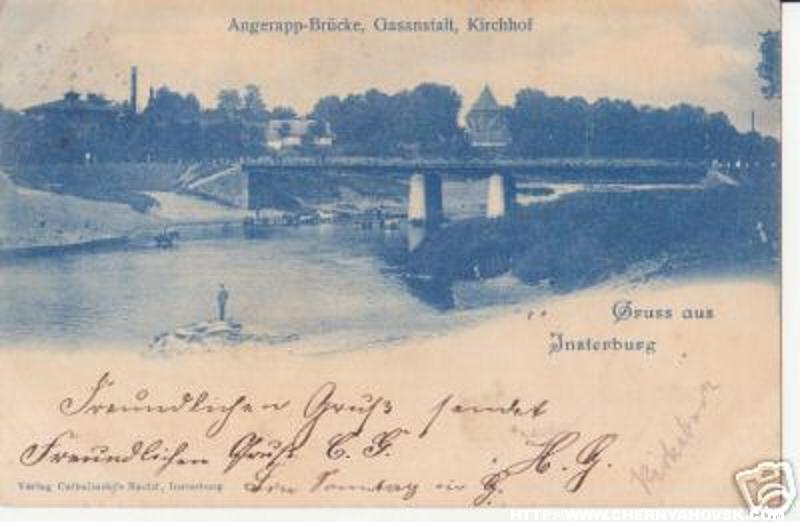 Angerapp-Brücke, Gasanstalt, Kirchhof
Gruss aus
Insterburg
Freundlichen Gruß sendet
Freundlichen Gruß E. G. H. G.
Sonntag in G.
Verlag Nachf., Insterburg
HTTP: WWW.CHERNYAHOVSK.COM